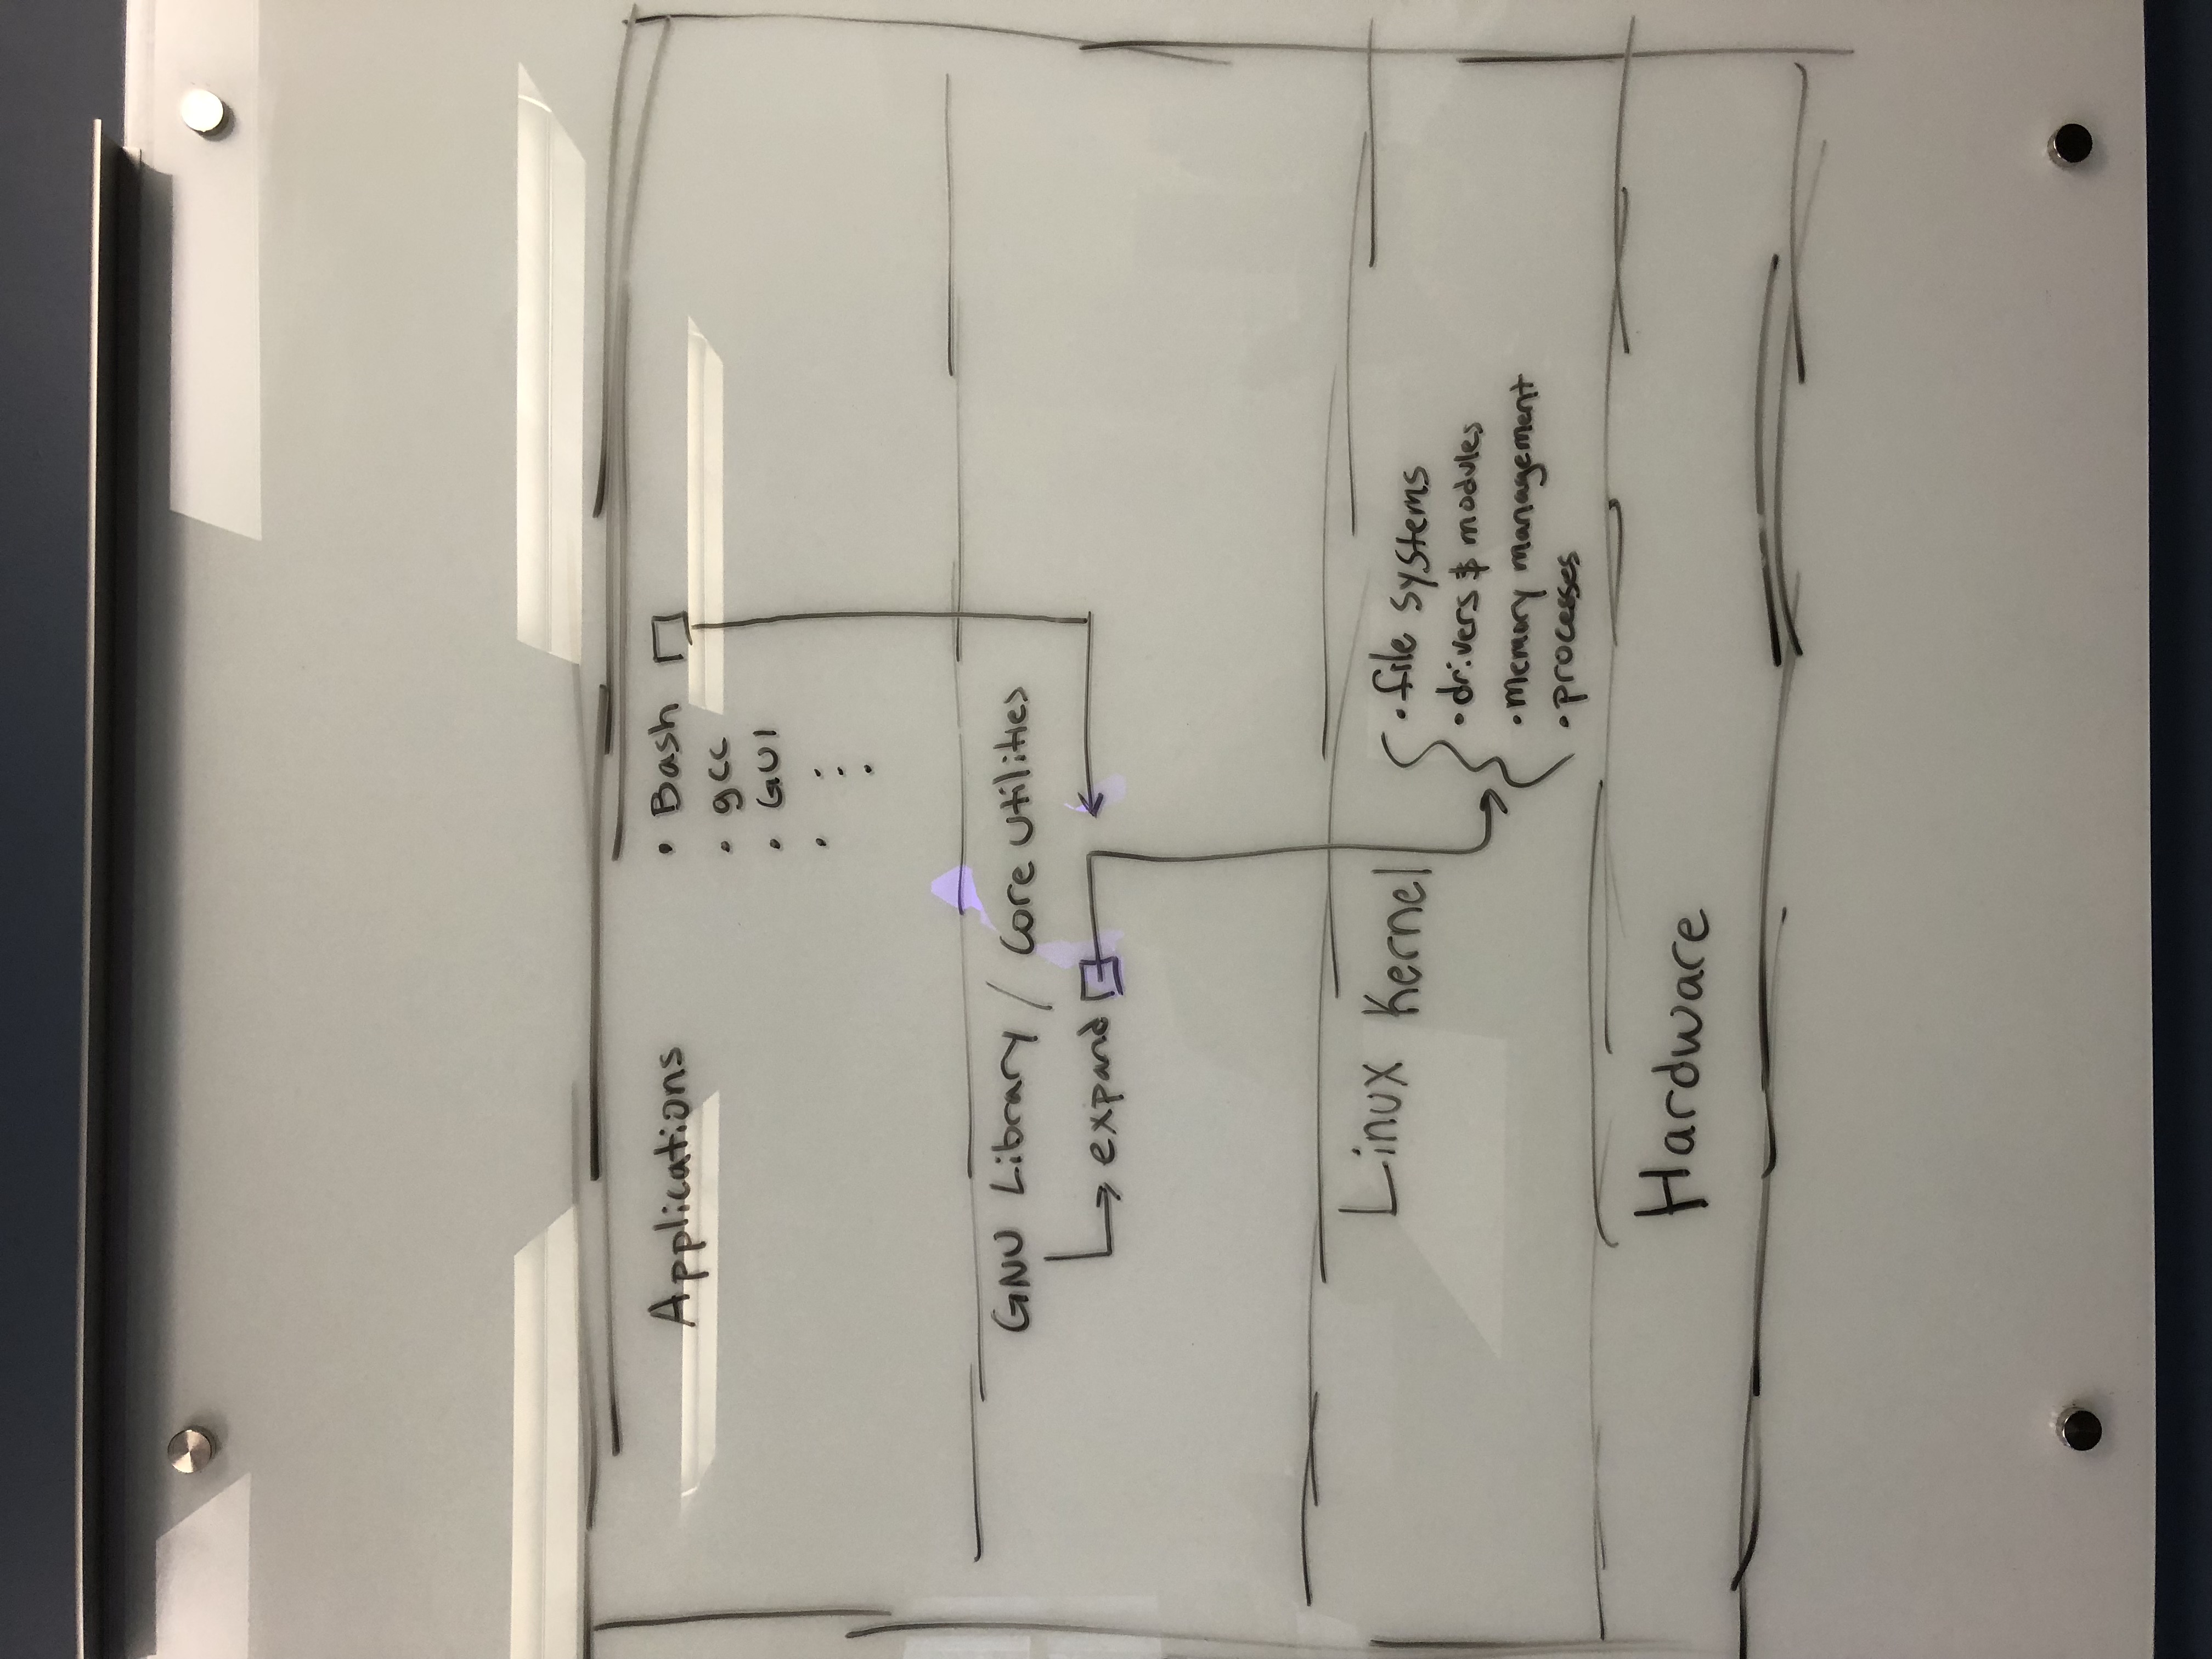 Applications
• Bash
• gcc
• GUI
•
GNU Library / Core utilities
expand
Linux Kernel
• file systems
• drivers & modules
• memory management
• processes
Hardware